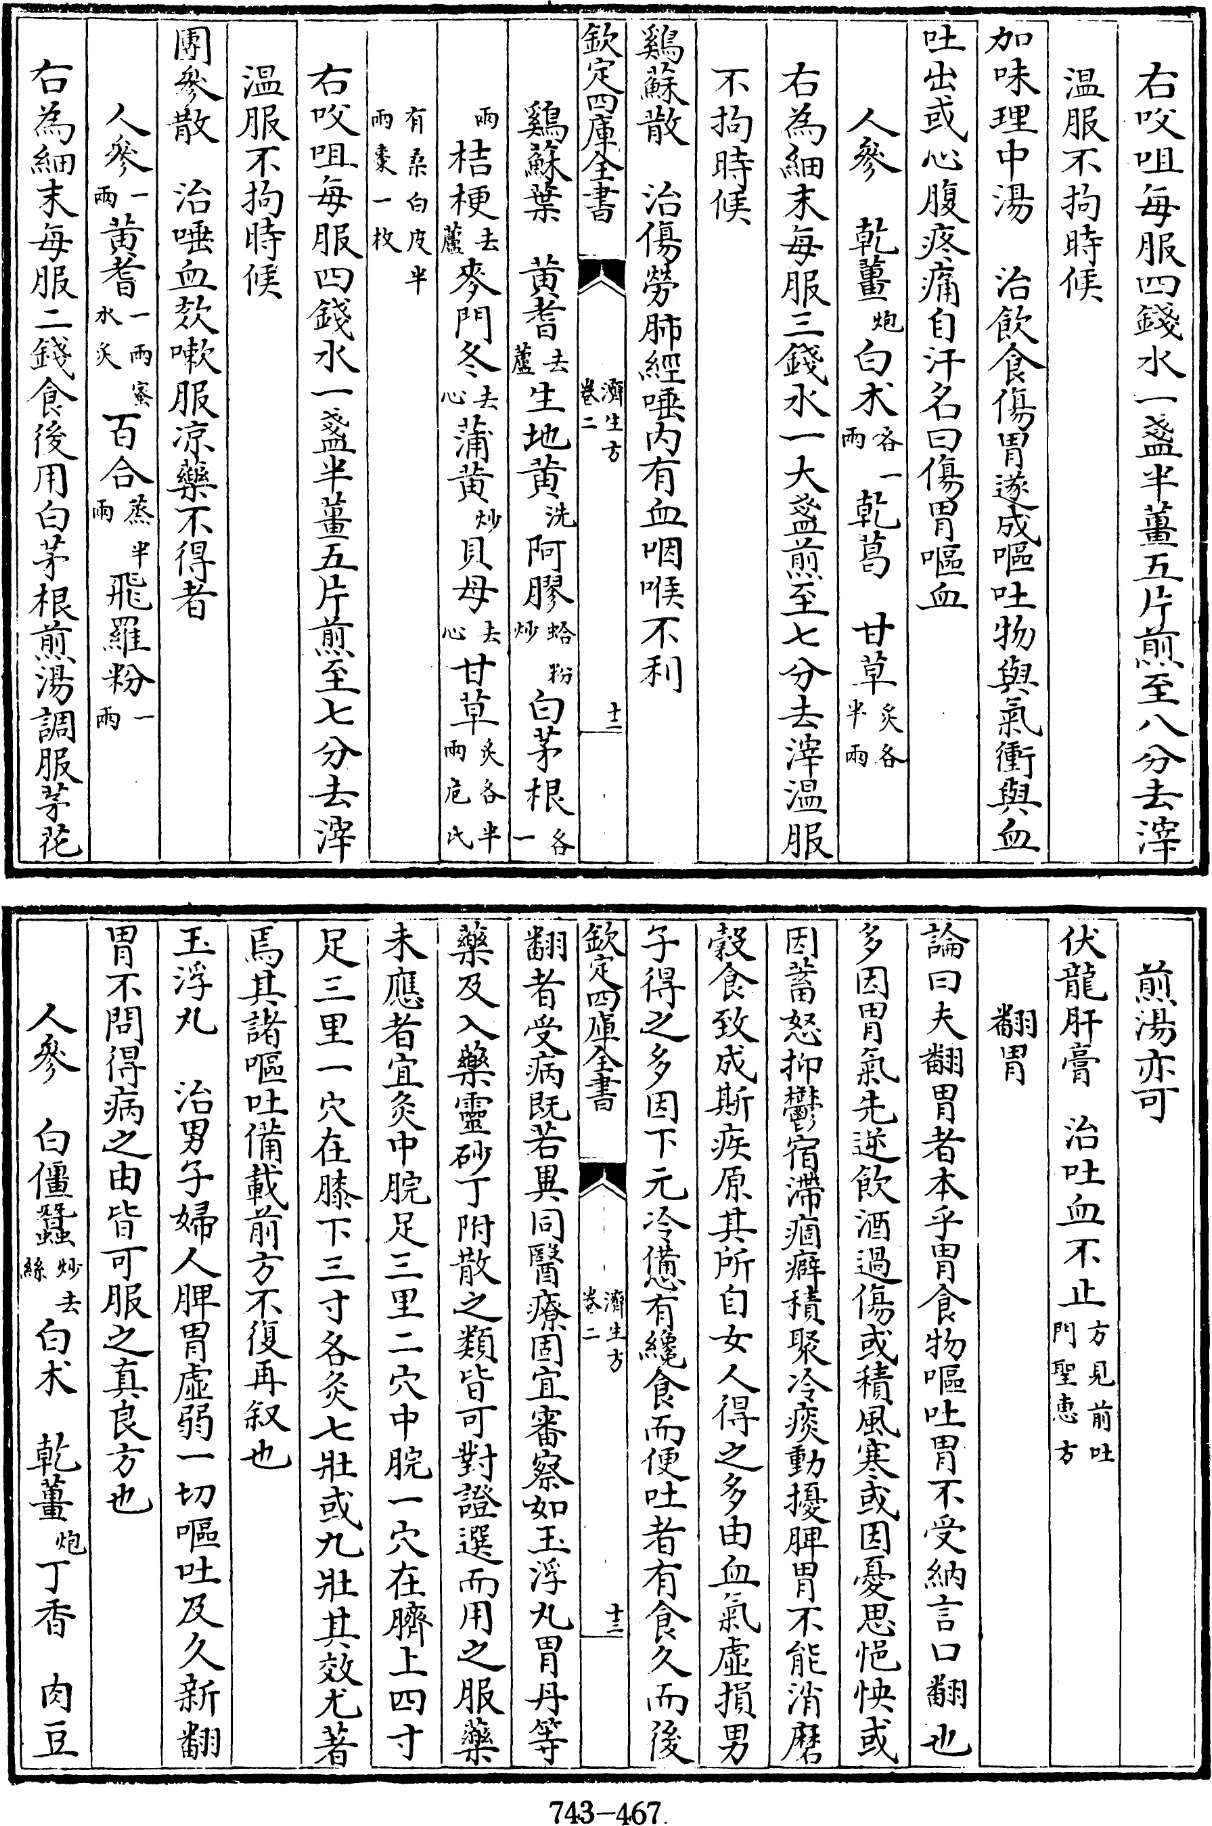 右㕮咀每服四錢水一盞半薑五片煎至八分去滓
温服不拘時候
加味理中湯 治飲食傷胃遂成嘔吐物與氣衝與血
吐出或心腹疼痛自汗名曰傷胃嘔血
人參 乾薑炮白术各一兩乾葛 甘草炙各半兩
右為細末每服三錢水一大盞煎至七分去滓温服
不拘時候
鷄蘇散 治傷勞肺經唾内有血咽喉不利
欽定四庫全書 濟生方卷二 十二
鷄蘇葉 黄耆去蘆生地黄洗阿膠蛤粉炒白茅根各一
兩桔梗去蘆麥門冬去心蒲黄炒貝母去心甘草炙各半兩危氏
有桑白皮半兩棗一枚
右㕮咀每服四錢水一盞半薑五片煎至七分去滓
温服不拘時候
團參散 治唾血欬嗽服凉藥不得者
人參一兩黄耆一兩蜜水炙百合蒸半兩飛羅粉一兩
右為細末每服二錢食後用白茅根煎湯調服茅花
煎湯亦可
伏龍肝膏 治吐血不止方見前吐門聖惠方
翻胃
論曰夫翻胃者本乎胃食物嘔吐胃不受納言曰翻也
多因胃氣先逆飲酒過傷或積風寒或因憂思悒怏或
因蓄怒抑鬱宿滯痼癖積聚冷痰動擾脾胃不能消磨
穀食致成斯疾原其所自女人得之多由血氣虛損男
子得之多因下元冷憊有纔食而便吐者有食久而後
欽定四庫全書 濟生方卷二 十三
翻者受病既若異同醫療固宜審察如玉浮丸胃丹等
藥及入藥靈砂丁附散之類皆可對證選而用之服藥
未應者宜灸中脘足三里二穴中脘一穴在臍上四寸
足三里一穴在膝下三寸各灸七壯或九壯其效尤著
焉其諸嘔吐備載前方不復再叙也
玉浮丸 治男子婦人脾胃虛弱一切嘔吐及久新翻
胃不問得病之由皆可服之真良方也
人參 白僵蠶炒去絲白术 乾薑炮丁香 肉豆
743-467